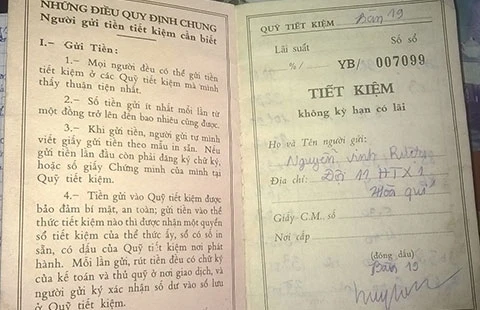 NHỮNG ĐIỀU QUY ĐỊNH CHUNG
Người gửi tiền tiết kiệm cần biết
I.- Gửi Tiền:
1.- Mọi người đều có thể gửi tiền
tiết kiệm ở các Quỹ tiết kiệm mà mình
thấy thuận tiện nhất.
2.- Số tiền gửi ít nhất mỗi lần từ
một đồng trở lên đến bao nhiêu cũng được.
3.- Khi gửi tiền, người gửi tự mình
viết giấy gửi tiền theo mẫu in sẵn. Nếu
gửi tiền lần đầu còn phải đăng ký chữ ký,
hoặc số giấy Chứng minh của mình tại
Quỹ tiết kiệm.
4.- Tiền gửi vào Quỹ tiết kiệm được
bảo đảm bí mật, an toàn; gửi tiền vào thể
thức tiết kiệm nào thì được nhận một quyển
sổ tiết kiệm của thể thức ấy, sổ có số in
sẵn, có dấu của Quỹ tiết kiệm nơi phát
hành. Mỗi lần gửi, rút tiền đều có chữ ký
của kế toán và thủ quỹ ở nơi giao dịch, và
người gửi ký xác nhận số dư vào sổ lưu
ở Quỹ tiết kiệm.
QUỸ TIẾT KIỆM Bàn 19
Lãi suất Số sổ
%/ YB/ 007099
TIẾT KIỆM
không kỳ hạn có lãi
Họ và Tên người gửi:
Nguyễn
Địa chỉ: Đội 11 HTX 1
Hòa quí
Giấy C.M. số
Nơi cấp
(đóng dấu)
Bàn 19